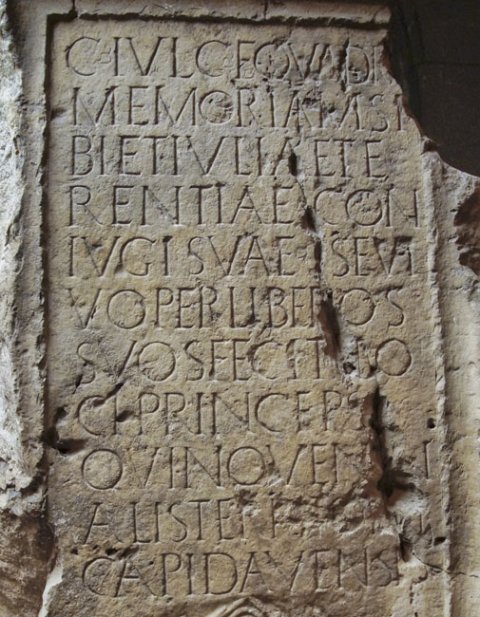 C IVL C F QVADR
MEMORIAM SI
BI ET IVLIAE TE
RENTIAE CON
IVGI SVAE SE VI
VO PER LIBEROS
SVOS FECIT LO
CI PRINCEPS
QVINQVEN
ALIS TERR
CAPIDAVENS